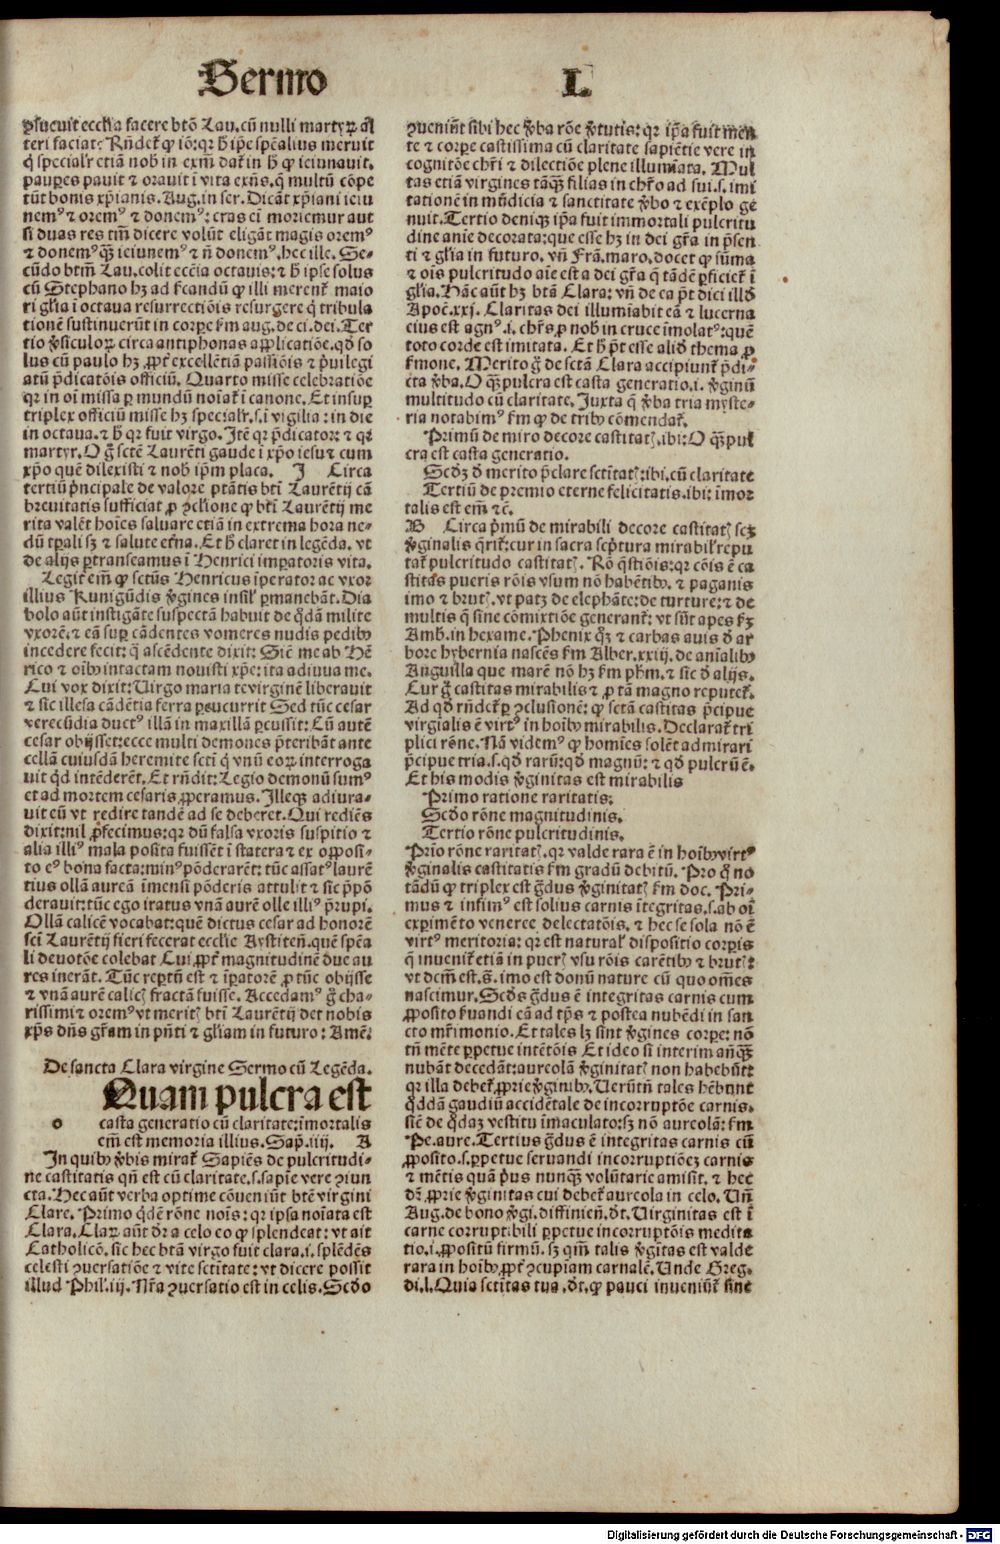 Sermo L.
ꝯsueuit ecclia facere btõ Lau. cũ nulli martyꝝ al
teri faciat: Rñdet ꝙ iõ: qꝛ h̃ ip̃e sp̃ealius meruit
q̃ specialr̃ etiã nob̃ in exm̃ dat̃ in h̃ ꝙ ieiunauit.
pauꝑes pauit ⁊ orauit ĩ vita exñs. q̃ multũ cõpe
tũt bonis xp̃ianis. Aug. in ser. Dicãt xp̃iani ieiu
nemꝰ ⁊ oremꝰ ⁊ donemꝰ: cras eĩ moriemur aut
si duas res tm̃ dicere volũt eligãt magis oremꝰ
⁊ donemꝰ qꝫ̃ ieiunemꝰ ⁊ ñ donemꝰ. hec ille. Se-
cũdo btm̃ Lau. colit ecc̃ia octauis: ⁊ h̃ ipse solus
cũ Stephano hꝫ ad ẜcandũ ꝙ illi merent̃ maio
ri gl̃ia ĩ octaua resurrectiõis resurgere q̃ tribula
tionẽ sustinuerũt in corꝑe ẜm aug. de ci. dei. Ter
tio ꝟsiculoꝝ circa antiphonas aꝓplicatiõe. qd̃ so
lus cũ paulo hꝫ ꝓpt̃ excellẽtiã passiõis ⁊ p̃uilegi
atũ p̃dicatõis officiũ. Quarto misse celebratiõe
qꝛ in oĩ missa ꝑ mundũ noĩat̃ ĩ canone. Et insuꝑ
triplex officiũ misse hꝫ specialr̃. s. ĩ vigilia: in die
in octaua. ⁊ h̃ qꝛ fuit virgo. Itẽ qꝛ p̃dicator: ⁊ qꝛ
martyr. O g̃ sctẽ Laurẽti gaude ĩ xp̃o iesu ⁊ cum
xp̃o quẽ dilexisti ⁊ nob̃ ip̃m placa. I Circa
tertiũ p̃ncipale de valore ptãtis btĩ Laurẽtij cã
breuitatis sufficiat ꝓ ꝯclione ꝙ btĩ Laurẽtij me
rita valẽt hoĩes saluare etiã in extrema hora ne-
dũ tꝑali sꝫ ⁊ salute et̃na. Et h̃ claret in legẽda. vt
de alijs ꝑtranseamus ĩ Henrici imꝑatoris vita.
Legit̃ em̃ ꝙ sctũs Henricus ĩperator ac vxor
illius Kunigũdis ꝟgines insil̃ ꝑmanebãt. Dia
bolo aũt instigãte suspectã habuit de q̃dã milite
vxorẽ. ⁊ eã suꝑ cãdentes vomeres nudis pedibꝰ
incedere fecit: q̃ ascẽdente dixit: Sic̃ me ab Hẽ
rico ⁊ oĩbꝰ intactam nouisti xp̃e: ita adiuua me.
Cui vox dixit: Virgo maria te virginẽ liberauit
⁊ sic illesa cãdẽtia ferra ꝑcucurrit Sed tũc cesar
verecũdia ductꝰ illã in maxillã ꝑcussit: Cũ autẽ
cesar obijsset: ecce multi demones p̃teribãt ante
cellã cuiusdã heremite scti q̃ vnũ eoꝝ interroga
uit qd̃ intẽderẽt. Et rñdit: Legio demonũ sumꝰ
et ad mortem cesaris ꝓperamus. Illeqꝫ adiura-
uit eũ vt redire tandẽ ad se deberet. Qui rediẽs
dixit: nil ꝓfecimus: qꝛ dũ falsa vxoris suspitio ⁊
alia illiꝰ mala posita fuissẽt ĩ statera ⁊ ex opposi-
to eꝰ bona facta: minꝰ põderarẽt: tũc assatꝰ laurẽ
tius ollã aureã ĩmensi põderis attulit ⁊ sic p̃põ
derauit: tũc ego iratus vnã aurẽ olle illiꝰ p̃rupi.
Ollã calicẽ vocabat: quẽ dictus cesar ad honorẽ
scĩ Laurẽtij fieri fecerat ecclie Aystiteñ. quẽ sp̃ea
li deuotõe colebat Cui ꝓpt̃ magnitudinẽ due au
res inerãt. Tũc reꝑtũ est ⁊ ĩꝑatorẽ ꝓ tũc obijsse
⁊ vnã aurẽ calicꝭ fractã fuisse. Accedamꝰ g̃ cha-
rissimi ⁊ oremꝰ vt meritꝭ btĩ Laurẽtij det nobis
xp̃s dñs gr̃am in pñti ⁊ gl̃iam in futuro: Amẽ.
De sancta Clara virgine Sermo cũ Legẽda.
Quam pulcra est
o casta generatio cũ claritate: ĩmortalis
em̃ est memoria illius. Sap. iiij. A
In quibꝰ ꝟbis mirat̃ Sapiẽs de pulcritudi-
ne castitatis qñ est cũ claritate. s. sapĩe vere ꝯiun
cta. Hec aũt verba optime cõueniũt btẽ virgini
Clare. Primo q̃dẽ rõne noĩs: qꝛ ipsa noĩata est
Clara. Claꝝ aũt dr̃ a celo eo ꝙ splendeat: vt ait
Catholicõ. sic̃ hec btã virgo fuit clara. i. splẽdẽs
celesti ꝯuersatiõe ⁊ vite sctĩtate: vt dicere possit
illud Phil. iij. Nr̃a ꝯuersatio est in celis. Scd̃o
ꝯueniũt sibi hec ꝟba rõe ꝟtutis: qꝛ ip̃a fuit men
te ⁊ corꝑe castissima cũ claritate sapiẽtie vere in
cognitõe chr̃i ⁊ dilectiõe plene illumĩata. Mul
tas etiã virgines tãqꝫ̃ filias in chr̃o ad sui. s. imi
tationẽ in mũdicia ⁊ sanctitate ꝟbo ⁊ exẽplo ge
nuit. Tertio deniqꝫ ip̃a fuit immortali pulcritu
dine anĩe decorata: que esse hꝫ in dei gr̃a in p̃sen
ti ⁊ gl̃ia in futuro. vñ Frã. maro. docet ꝙ sũma
⁊ oĩs pulcritudo aĩe est a dei gr̃a q̃ tãdẽ ꝑficiet̃ ĩ
gl̃ia. Hãc aũt hꝫ btã Clara: vñ de ea p̃t dici illd̃
Apoc̃. xxj. Claritas dei illumiabit eã ⁊ lucerna
eius est agnꝰ. i. chr̃s ꝓ nob̃ in cruce ĩmolatꝰ: quẽ
toto corde est imitata. Et h̃ p̃t esse aliđ thema ꝓ
ẜmone. Merito g̃ de sctã Clara accipiunt̃ p̃di-
cta ꝟba. O qꝫ̃ pulcra est casta generatio. i. ꝟginũ
multitudo cũ claritate. Juxta q̃ ꝟba tria myste-
ria notabimꝰ ẜm ꝙ de tribꝰ cõmendat̃.
Primũ de miro decore castitatꝭ. ibi: O qꝫ̃ pul
cra est casta generatio.
Scdꝫ đ merito p̃clare sctĩtatꝭ: ibi. cũ claritate
Tertiũ de premio eterne felicitatis. ibi: ĩmor
talis est em̃ ⁊c̃.
B Circa p̃mũ de mirabili decore castitatꝭ scꝫ
ꝟginalis q̃rit̃: cur in sacra scp̃tura mirabil̃ repu
tat̃ pulcritudo castitatꝭ. Rõ q̃stiõis: qꝛ cõis ẽ ca
stitas pueris rõis vsum nõ habẽtibꝰ. ⁊ paganis
imo ⁊ brutꝭ. vt patꝫ de elephãte: de turture: ⁊ de
multis q̃ sine cõmixtiõe generant̃: vt sũt apes ẜꝫ
Amb. in hexame. Phenix qꝫ ⁊ carbas auis đ ar
bore hybernia nascẽs ẜm Alber. xxiij. de anĩalibꝰ
Anguilla que marẽ nõ hꝫ ẜm ph̃m. ⁊ sic đ alijs.
Cur g̃ castitas mirabilis ⁊ ꝓ tã magno reputet̃.
Ad qđ rñdet̃ ꝑ ꝯclusionẽ: ꝙ sctã castitas p̃cipue
virgialis ẽ virtꝰ in hoĩbꝰ mirabilis. Declarat̃ tri
plici rõne. Nã videmꝰ ꝙ homĩes solẽt admirari
p̃cipue tria. s. qđ rarũ: qđ magnũ: ⁊ qđ pulcrũ ẽ.
Et his modis ꝟginitas est mirabilis
Primo ratione raritatis:
Scđo rõne magnitudinis.
Tertio rõne pulcritudinis.
Prĩo rõne raritatꝭ. qꝛ valde rara ẽ in hoĩbꝰ virtꝰ
ꝟginalis castitatis ẜm gradũ debitũ. Pro q̃ no
tãdũ ꝙ triplex est g̃dus ꝟginitatꝭ ẜm doc. Pri-
mus ⁊ infimꝰ est solius carnis ĩtegritas. s. ab oĩ
exꝑimẽto veneree delectatõis. ⁊ hec se sola nõ ẽ
virtꝰ meritoria: qꝛ est natural̃ dispositio corꝑis
q̃ inuenit̃ etiã in puerꝭ vsu rõis carẽtibꝰ ⁊ brutꝭ:
vt dcm̃ est. s̃. imo est donũ nature cũ quo omẽs
nascimur. Scđs g̃dus ẽ integritas carnis cum
ꝓposito ẜuandi eã ad tp̃s ⁊ postea nubẽdi in san
cto mr̃imonio. Et tales lꝫ sint ꝟgines corꝑe: nõ
tñ mẽte ꝑpetue intẽtõis Et ideo si interim anqꝫ̃
nubãt decedãt: aureolã ꝟginitatꝭ non habebũt:
qꝛ illa debet̃ ꝓprie ꝟginibꝰ. Verũtñ tales hẽbũnt
q̃ddã gaudiũ accidẽtale de incorruptõe carnis.
sic̃ de q̃daꝫ vestitu ĩmaculato: sꝫ nõ aureolã: ẜm
Pe. aure. Tertius g̃dus ẽ integritas carnis cũ
ꝓposito. s. ꝑpetue seruandi incorruptiõeꝫ carnis
⁊ mẽtis quã p̃us nunqꝫ̃ volũtarie amisit. ⁊ hec
dr̃ ꝓprie ꝟginitas cui debet̃ aureola in celo. Vñ
Aug. de bono ꝟgi. diffinieñ. dt̃. Virginitas est ĩ
carne corruptibili ꝑpetue incorruptõis medita
tio. i. ꝓpositũ firmũ. sꝫ qm̃ talis ꝟgĩtas est valde
rara in hoĩbꝰ ꝓpt̃ ꝯcupiam carnalẽ. Unde Greg.
di. l. Quia sctĩtas tua. dt̃. ꝙ pauci inueniũt̃ sine
Digitalisierung gefördert durch die Deutsche Forschungsgemeinschaft - DFG